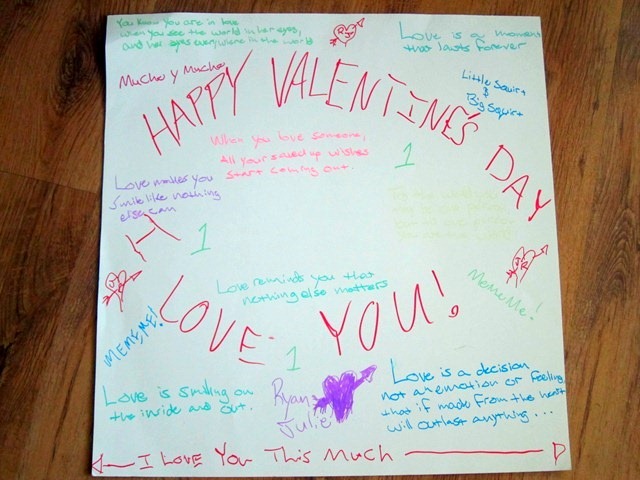 You know you are in love
when you see the world in her eyes,
and her eyes everywhere in the world
Love is a moment
that lasts forever
Mucho y Mucho
Little Squirt
&
Big Squirt
HAPPY VALENTINE'S DAY
When you love someone,
All your saved up wishes
start coming out.
1
Love makes you
smile like nothing
else can
I
1
Love reminds you that
nothing else matters
MeMeMe!
LOVE YOU!
MEMEME!
1
Love is smiling on
the inside and out.
Ryan
Julie
Love is a decision
not an emotion or feeling
that if made from the heart
will outlast anything...
I Love You This Much